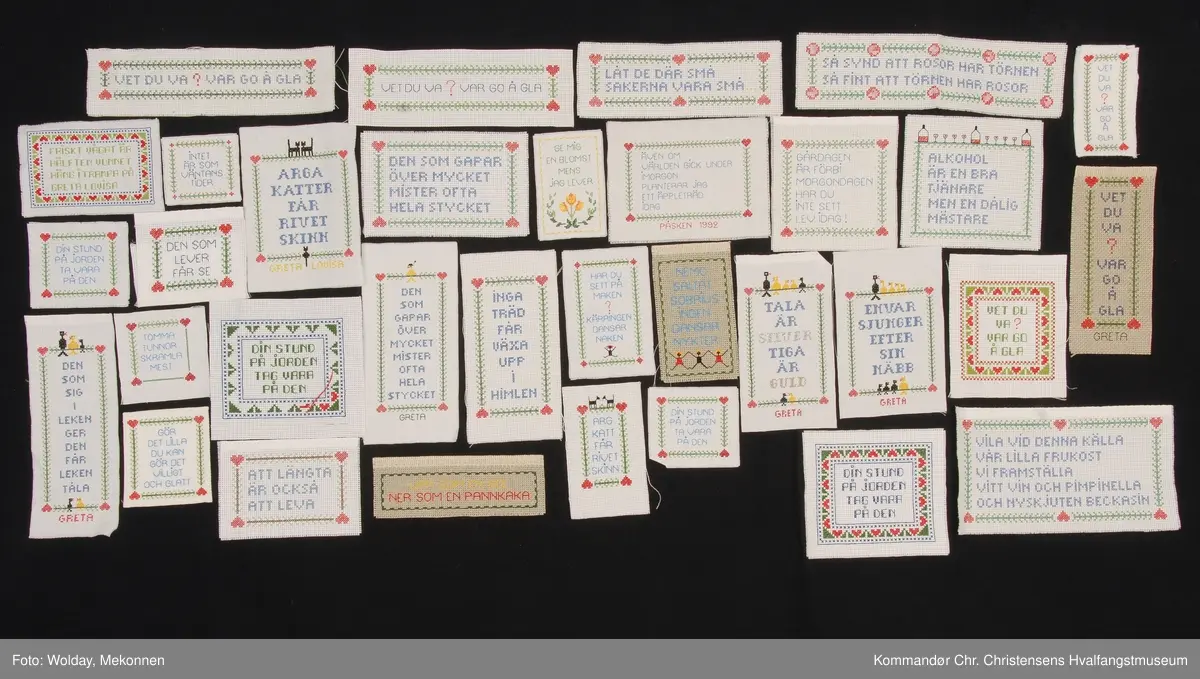 VET DU VA? VAR GO Å GLA
VET DU VA? VAR GO Å GLA
LÅT DE DÄR SMÅ
SAKERNA VARA SMÅ
SÅ SYND ATT ROSOR HAR TÖRNEN
SÅ FINT ATT TÖRNEN HAR ROSOR
VET
DU
VA
?
VAR
GO
Å
GLA
FRISKT VÅGAT ÄR
HÄLFTEN VUNNET
GRETA LOVISA
INTET
ÄR SOM
VÄNTANS
TIDER
ARGA
KATTER
FÅR
RIVET
SKINN
GRETA LOVISA
DEN SOM GAPAR
ÖVER MYCKET
MISTER OFTA
HELA STYCKET
GE MIG
EN BLOMST
MENS
JAG LEVER
ÄVEN OM
VÄRLDEN GICK UNDER
MORGON
PLANTERAR JAG
ETT ÄPPLETRÄD
IDAG
PÅSKEN 1992
GÅRDAGEN
ÄR FÖRBI
MORGONDAGEN
HAR DU
INTE SETT
LEV IDAG!
ALKOHOL
ÄR EN BRA
TJÄNARE
MEN EN DÅLIG
MÄSTARE
VET
DU
VA
?
VAR
GO
Å
GLA
GRETA
DIN STUND
PÅ JORDEN
TA VARA
PÅ DEN
DEN SOM
LEVER
FÅR SE
DEN
SOM
SIG
I
LEKEN
GER
DEN
FÅR
LEKEN
TÅLA
GRETA
TOMMA
TUNNOR
SKRAMLA
MEST
DIN STUND
PÅ JORDEN
TAG VARA
PÅ DEN
DEN
SOM
GAPAR
ÖVER
MYCKET
MISTER
OFTA
HELA
STYCKET
GRETA
INGA
TRÄD
FÅR
VÄXA
UPP
I
HIMLEN
HAR DU
SETT PÅ
MAKEN
?
KÄRRINGEN
DANSAR
NAKEN
NEMO
SALTAT
SOBRIUS
INGEN
DANSAR
NYKTER
TALA
ÄR
SILVER
TIGA
ÄR
GULD
GRETA
ENVAR
SJUNGER
EFTER
SIN
NÄBB
GRETA
VET DU
VA?
VAR GO
Å GLA
GÖR
DET LILLA
DU KAN
GÖR DET
VILLIGT
OCH GLATT
ATT LÄNGTA
ÄR OCKSÅ
ATT LEVA
NER SOM EN PANNKAKA
ARG
KATT
FÅR
RIVET
SKINN
DIN STUND
PÅ JORDEN
TA VARA
PÅ DEN
DIN STUND
PÅ JORDEN
TAG VARA
PÅ DEN
VILA VID DENNA KÄLLA
VÅR LILLA FRUKOST
VI FRAMSTÄLLA
VITT VIN OCH PIMPINELLA
OCH NYSKJUTEN BECKASIN
Foto: Wolday, Mekonnen
Kommandør Chr. Christensens Hvalfangstmuseum